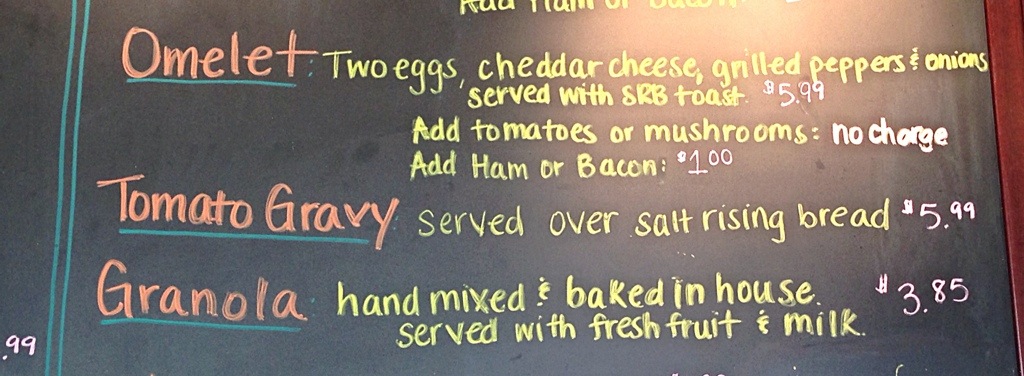 Add Ham or Bacon:
Omelet: Two eggs, cheddar cheese, grilled peppers & onions
served with SRB toast. $5.99
Add tomatoes or mushrooms: no charge
Add Ham or Bacon: $1.00
Tomato Gravy served over salt rising bread $5.99
Granola: hand mixed & baked in house. $3.85
served with fresh fruit & milk.
.99